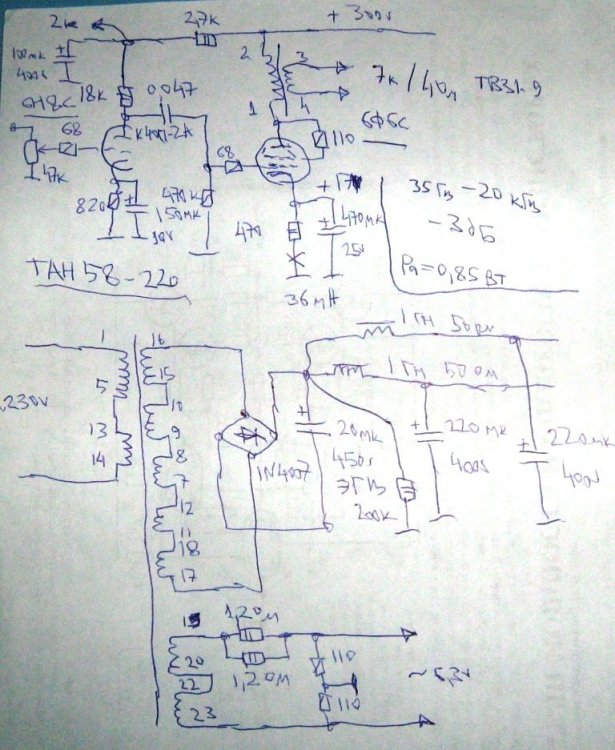 2k
2,7k
+ 300v
100мк
400v
2
3
7к / 4Ом ТВЗ1-9
18k
0,047
1
4
6Н8С
К40П-2А
110
6Ф6С
68
68
47к
+17v
35Гц – 20 кГц
820
150мк
10v
470к
470
470мк
25v
– 3дБ
Pa = 0,85Вт
ТАН 58 – 220
36мА
1
16
1 Гн 50Ом
5
15
1 Гн 50Ом
10
230v
13
9
20мк
220мк
220мк
14
8
450v
400v
400v
7
1N4007
ЭГЦ
12
200к
11
18
17
19
1,2Ом
20
110
22
1,2Ом
~6,3v
110
23